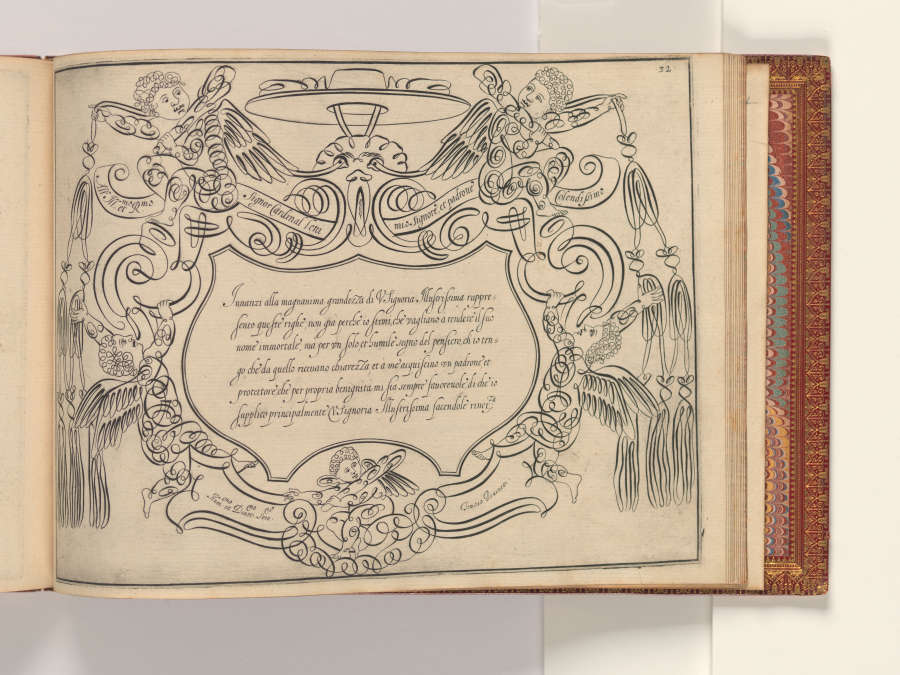 32
Ill.mo
Signor Cardinal Sera
mio Signore et padrone
Colendissimo
Innanzi alla magnanima grandezza di V. Signoria Illustrissima rappre-
sento queste righe, non già perche io stimi, che vagliano a rendere il suo
nome immortale, ma per vn solo et humile segno del pensiero, ch io ten-
go che da quello riceuano chiarezza et à me acquistino vn padrone et
protettore che per propria benignità mi sia sempre fauoreuole di che io
supplico principalmente V. Signoria Illustrissima facendole riuer.za
Hum. et Deuot. Ser.